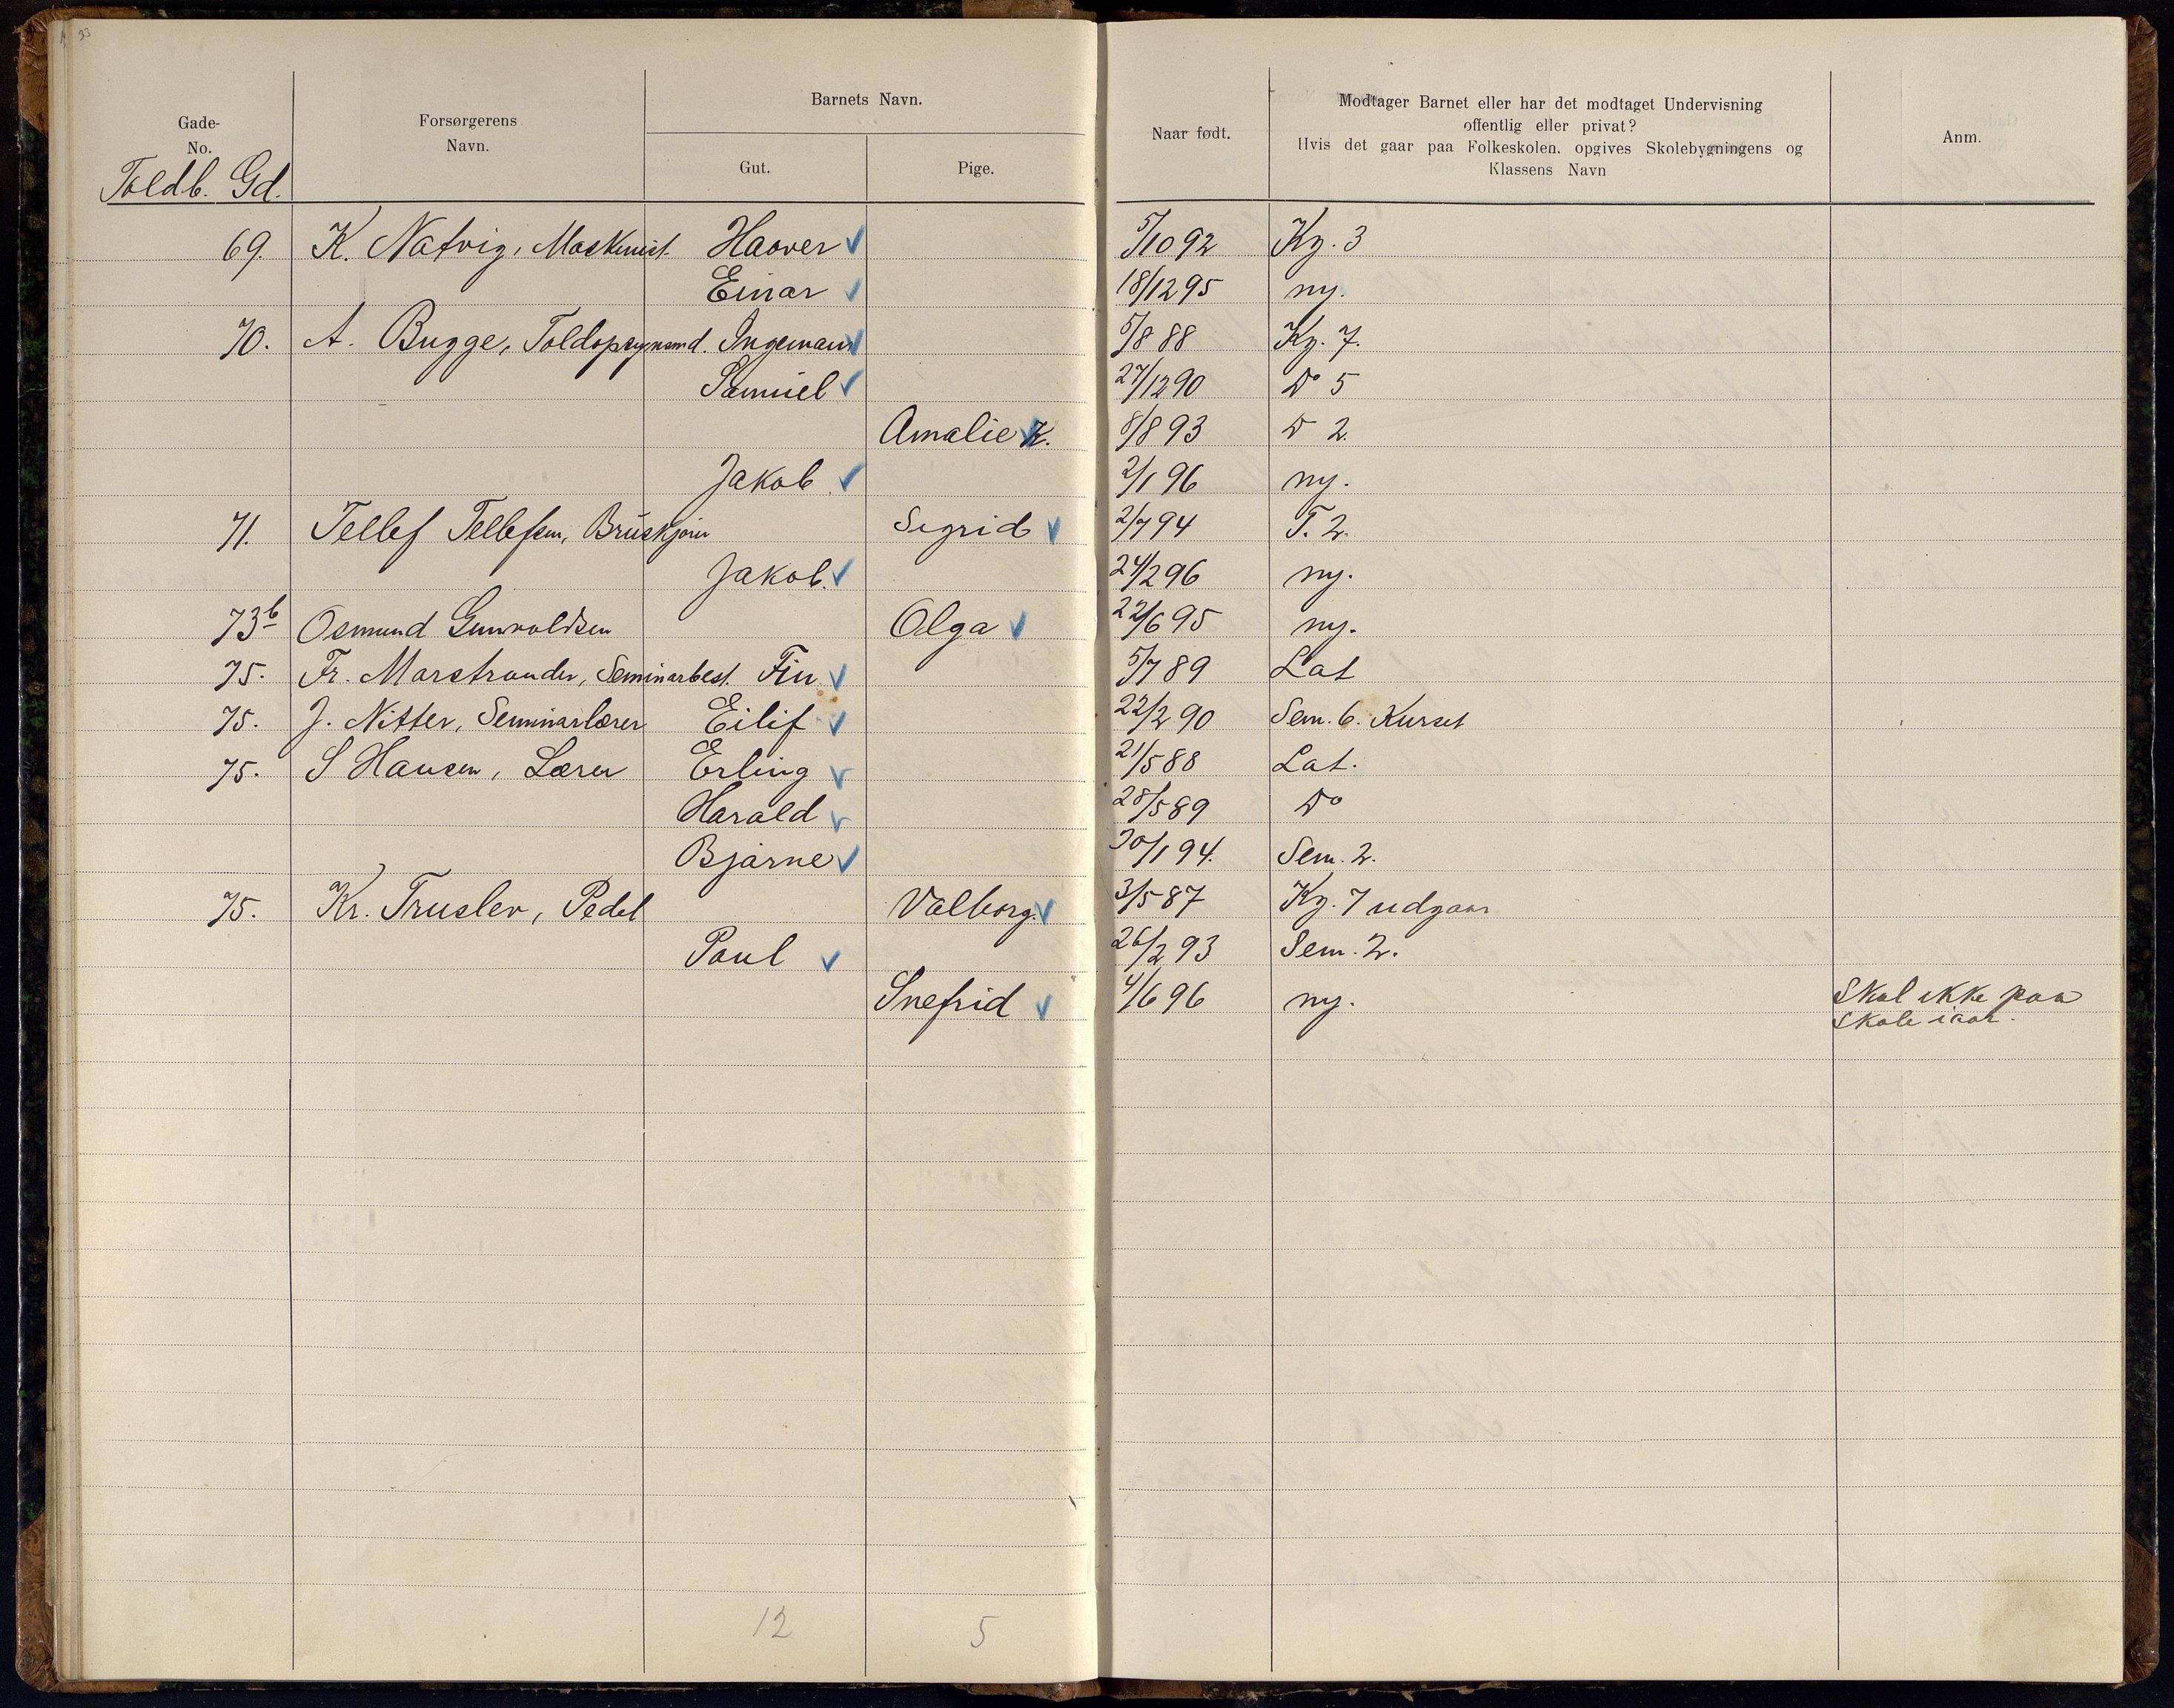 33
Gade-
No.
Forsørgerens
Navn.
Barnets Navn.
Gut.
Pige.
Naar født.
Modtager Barnet eller har det modtaget Undervisning
offentlig eller privat?
Hvis det gaar paa Folkeskolen. opgives Skolebygningens og
Klassens Navn
Anm.
Toldb. Gd.
69. K. Natvig, Maskinist. Haaver 5/10 92 Kg. 3
Einar 18/12 95 ny.
70. A. Bugge, Toldopsynsmd. Ingemann 5/8 88 Kg. 7.
Samuel 27/12 90 Do 5
Amalie K. 8/8 93 D 2.
Jakob 2/1 96 ny.
71. Tellef Tellefsen, Bruskjører Sigrid 2/7 94 T. 2.
Jakob. 24/2 96 ny.
73b Osmund Gunvoldsen Olga 22/6 95 ny.
75. Fr. Marstrander, Seminarbest. Fin 5/7 89 Lat
75. J. Nitter, Seminarlærer Eilif 22/2 90 Sem. 6. Kurset
75. S Hansen, Lærer Erling 21/5 88 Lat.
Harald 28/5 89 Do
Bjarne 30/1 94. Sem. 2.
75. Kr. Trusler, Pedel Valborg. 3/5 87 Kg. 7 udgaar
Paul 26/2 93 Sem. 2.
Snefrid 4/6 96 ny. Skal ikke paa
Skole iaar.
12 5